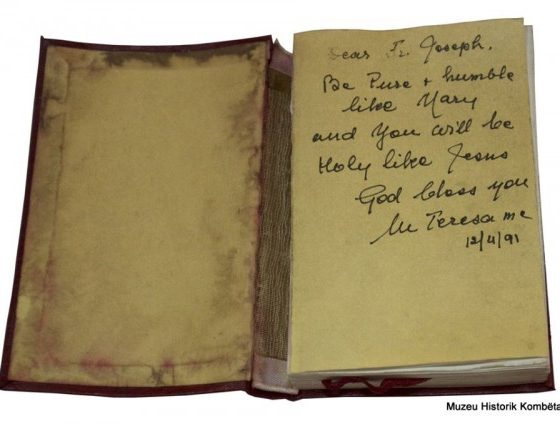 Dear Fr. Joseph.
Be Pure + humble
like Mary
and you will be
Holy like Jesus
God bless you
M Teresa mc
12/4/91
Muzeu Historik Kombëta